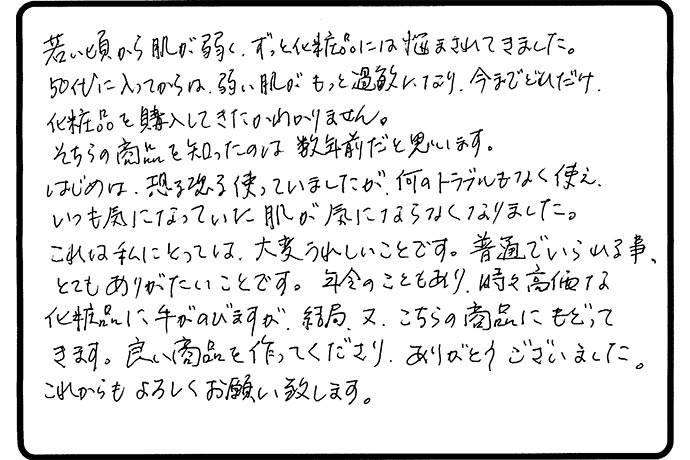 若い頃から肌が弱く、ずっと化粧品には悩まされてきました。
50代に入ってからは、弱い肌がもっと過敏になり、今までどれだけ、
化粧品を購入してきたかわかりません。
そちらの商品を知ったのは数年前だと思います。
はじめは、恐る恐る使っていましたが、何のトラブルもなく使え、
いつも気になっていた肌が気にならなくなりました。
これは私にとっては、大変うれしいことです。普通でいられる事、
とてもありがたいことです。年令のこともあり、時々高価な
化粧品に、手がのびますが、結局、又、こちらの商品にもどって
きます。良い商品を作ってくださり、ありがとうございました。
これからもよろしくお願い致します。